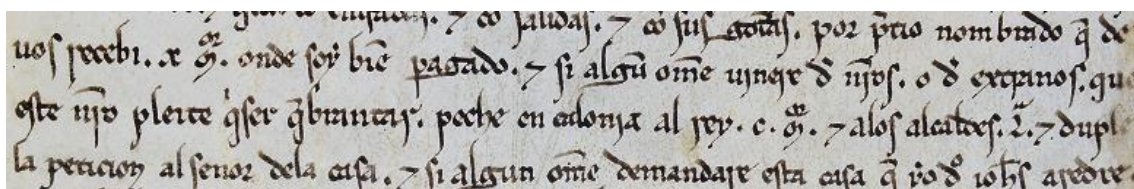 entradas. ⁊ cō salidas. ⁊ cō sus gotas. por p̄tio nombrado q̄ de
uos recebi. x. m̄r. onde soy biē pagado. ⁊ si algū ome uiniere d̄ nr̄os. o d̄ extranos. que
este nr̄o pleite q̇ser q̄brantar. peche en calonia al rey. c. m̄r. ⁊ alos alcaldes. L. ⁊ duple
la peticion al senor dela casa. ⁊ si algun ome demandare esta casa q̄ yo dō iohs aredre